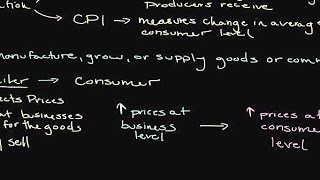 producers receive
CPI → measures change in average
consumer level
manufacture, grow, or supply goods or com
→ Consumer
ects Prices
at businesses
for the goods
sell
↑ prices at business level → ↑ prices at consumer level